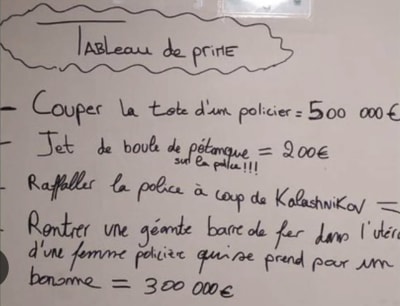 TABLeau de PRIME
- Couper la tete d'un policier = 500 000€
- Jet de boule de pétanque = 200€
sur la police!!!
- Raffaller la police à coup de KalashNiKov =
- Rentrer une géante barre de fer dans l'utér
d'une femme policière qui se prend pour un
bonomme = 300 000€